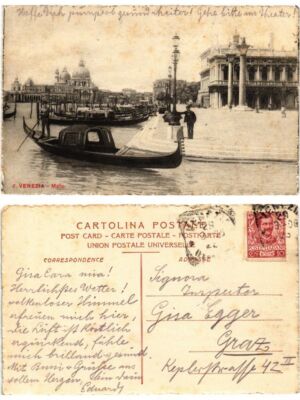 Hoffe Dich pumperlgesund weiter! Gehe bitte ins Theater!
VENEZIA - Molo
CARTOLINA POSTALE
POST CARD - CARTE POSTALE - POSTKARTE
UNION POSTALE UNIVERSELLE
CORRESPONDENCE
Gisa Cara mia!
Herrlichstes Wetter!
wolkenloser Himmel
erfreuen mich hier,
die Luft ist köstlich
erquickend, fühle
mich brillant gesund.
Mit Bussi & Grüsse aus
vollem Herzen, Dein
Eduard
Signora
Inspector
Gisa Egger
Graz
Keplerstrasse 42 II